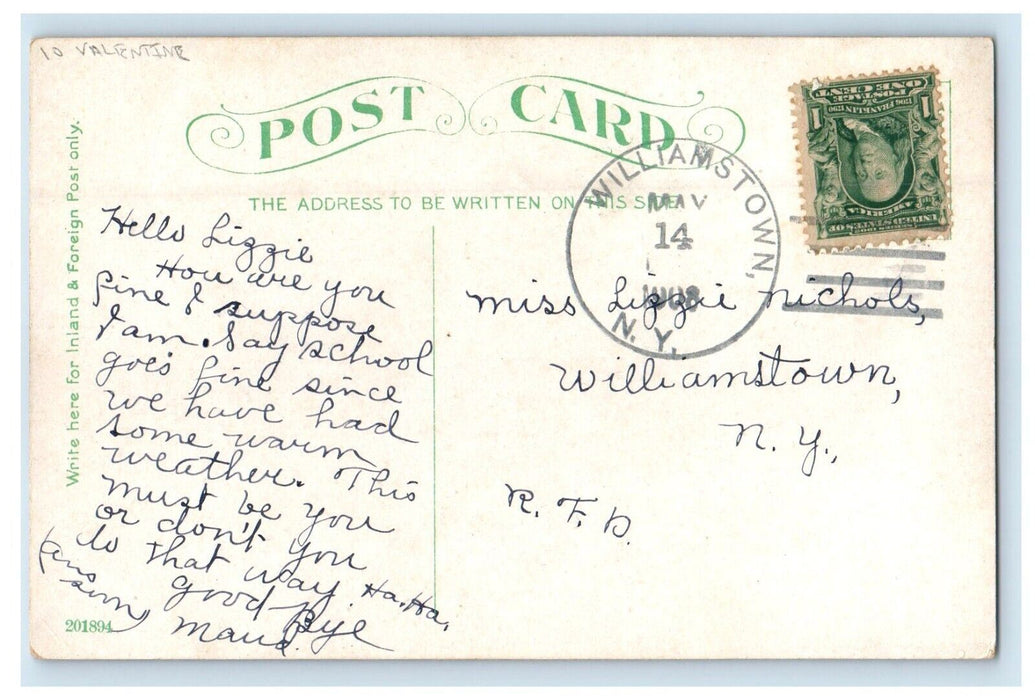 10 VALENTINE
POST CARD
THE ADDRESS TO BE WRITTEN ON THIS SIDE
Write here for Inland & Foreign Post only.
Hello Lizzie
How are you
fine I suppose
I am. Say school
goes fine since
we have had
some warm
weather. This
must be you
or don't you
do that way Ha. Ha.
good Bye
Maud.
ans
soon
201894
WILLIAMSTOWN,
MAY
14
1908
N. Y.
Miss Lizzie Nichols,
Williamstown,
N. Y.,
R. F. D.
UNITED STATES OF
AMERICA
1706 FRANKLIN 1790
POSTAGE
ONE CENT
1 1